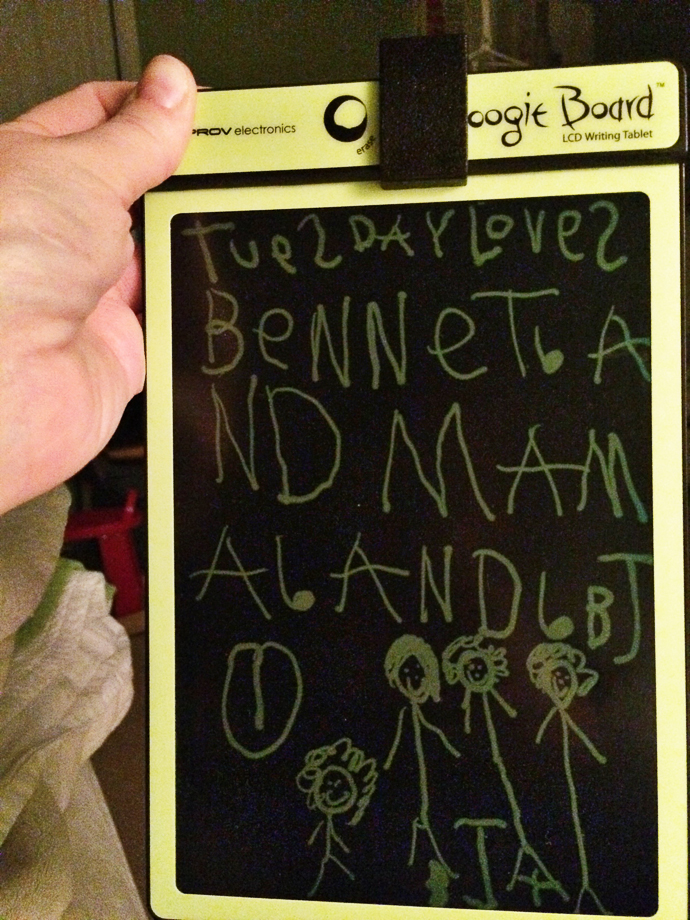 PROV electronics
erase
oogie Board™
LCD Writing Tablet
TUeSDAY LOVeS
BeNNeT, A
ND MAM
A, AND, BJ
JA